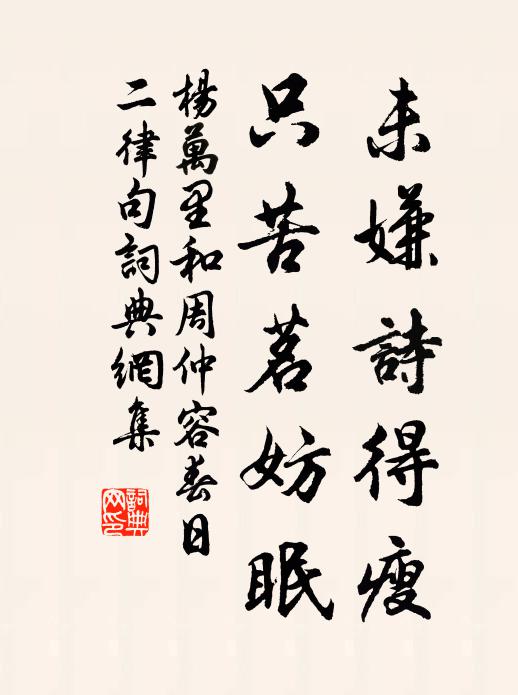 未嫌詩得瘦
只苦茗妨眠
楊萬里和周仲容春日
二律句詞典網集
詞典
网印